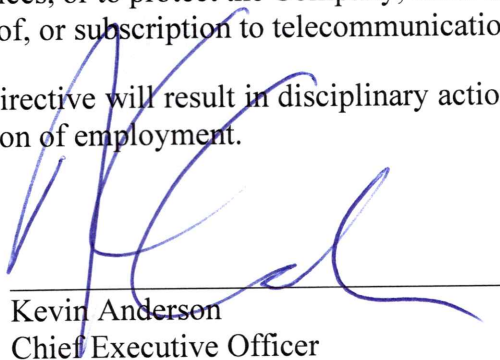 of, or subscription to telecommunicatio
irective will result in disciplinary actio
on of employment.
Kevin Anderson
Chief Executive Officer